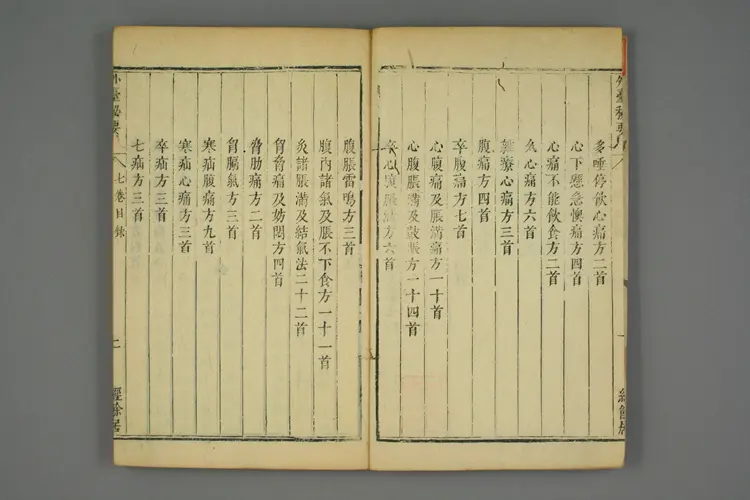 外臺秘要
多唾停飲心痛方二首
心下懸急懊痛方四首
心痛不能飲食方二首
久心痛方六首
雜療心痛方三首
腹痛方四首
卒腹痛方七首
心腹痛及脹滿痛方一十首
心腹脹滿及鼓脹方一十四首
卒心腹脹滿方六首
腹脹雷鳴方三首
腹内諸氣及脹不下食方一十一首
灸諸脹滿及結氣法二十二首
胷脅痛及妨悶方四首
脅肋痛方二首
胷膈氣方三首
寒疝腹痛方九首
寒疝心痛方三首
卒疝方三首
七疝方三首
外臺秘要 七卷目錄 二 經餘居